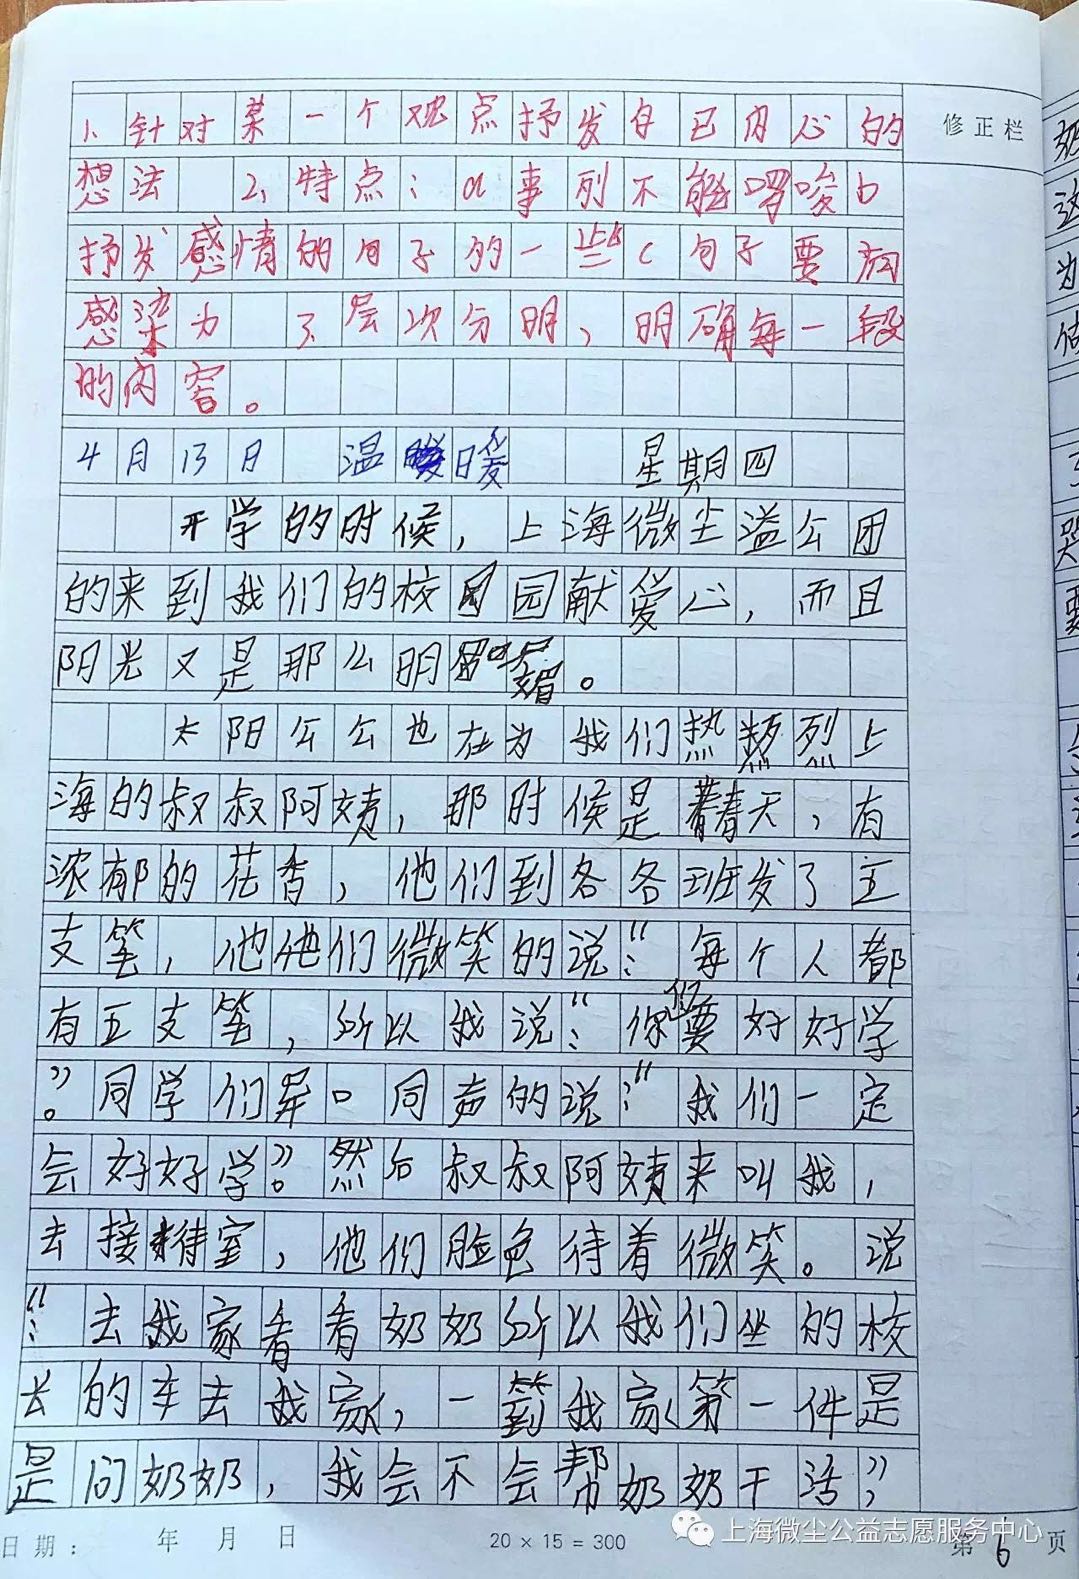 1、针对某一个观点抒发自己内心的
想法 2、特点：a事列不能啰唆b
抒发感情的句子的一些c句子要有
感染力 3、层次分明，明确每一段
的内容。
修正栏
4月13日 温暖 星期四
开学的时候，上海微尘溢公团
的来到我们的校园献爱心，而且
阳光又是那么明媚。
太阳公公也在为我们热烈上
海的叔叔阿姨，那时候是春天，有
浓郁的花香，他们到各各班发了五
支笔，他他们微笑的说：“每个人都
有五支笔，所以我说：“你们要好好学
”。同学们异口同声的说：“我们一定
会好好学”。然后叔叔阿姨来叫我，
去接待室，他们脸色待着微笑。说
：“去我家看看奶奶所以我们坐的校
长的车去我家，一到我家第一件是
是问奶奶，我会不会帮奶奶干活”，
日期： 年 月 日 20×15=300 第 6 页
上海微尘公益志愿服务中心